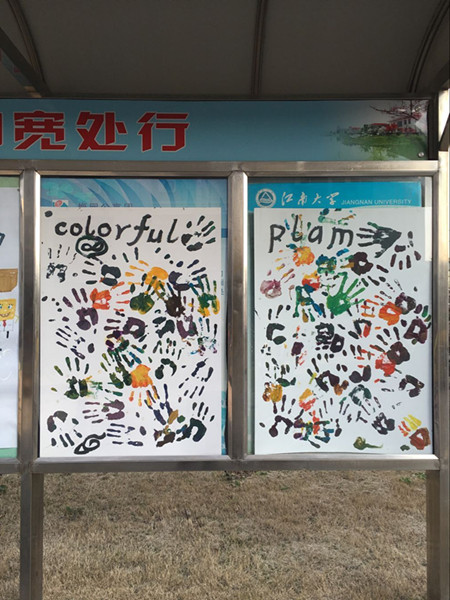 宽处行
江南大学 JIANGNAN UNIVERSITY
colorful
plam